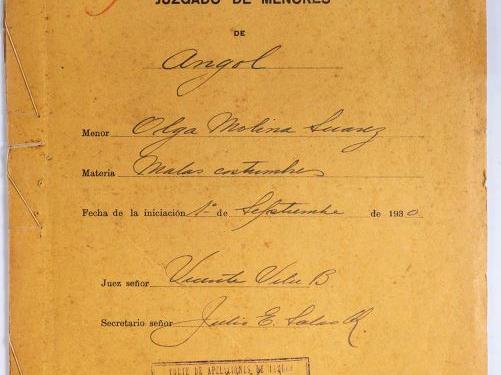 JUZGADO DE MENORES
DE
Angol
Menor Olga Molina Suarez
Materia Malas costumbres
Fecha de la iniciación 1º de Septiembre de 1930
Juez señor Vicente B
Secretario señor Julio E. Salas R.
CORTE DE APELACIONES DE TEMUCO